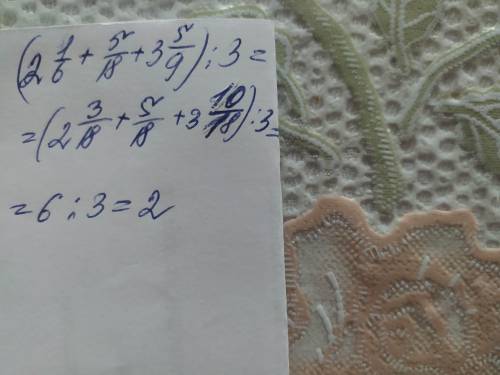 (2 1/6 + 5/18 + 3 5/9) : 3 =
= (2 3/18 + 5/18 + 3 10/18) : 3 =
= 6 : 3 = 2